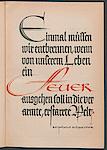 Einmal müssen
wir entbrennen, wenn
von unserem Leben
ein
Feuer
ausgehen soll in die ver
armte, erstarrte Welt